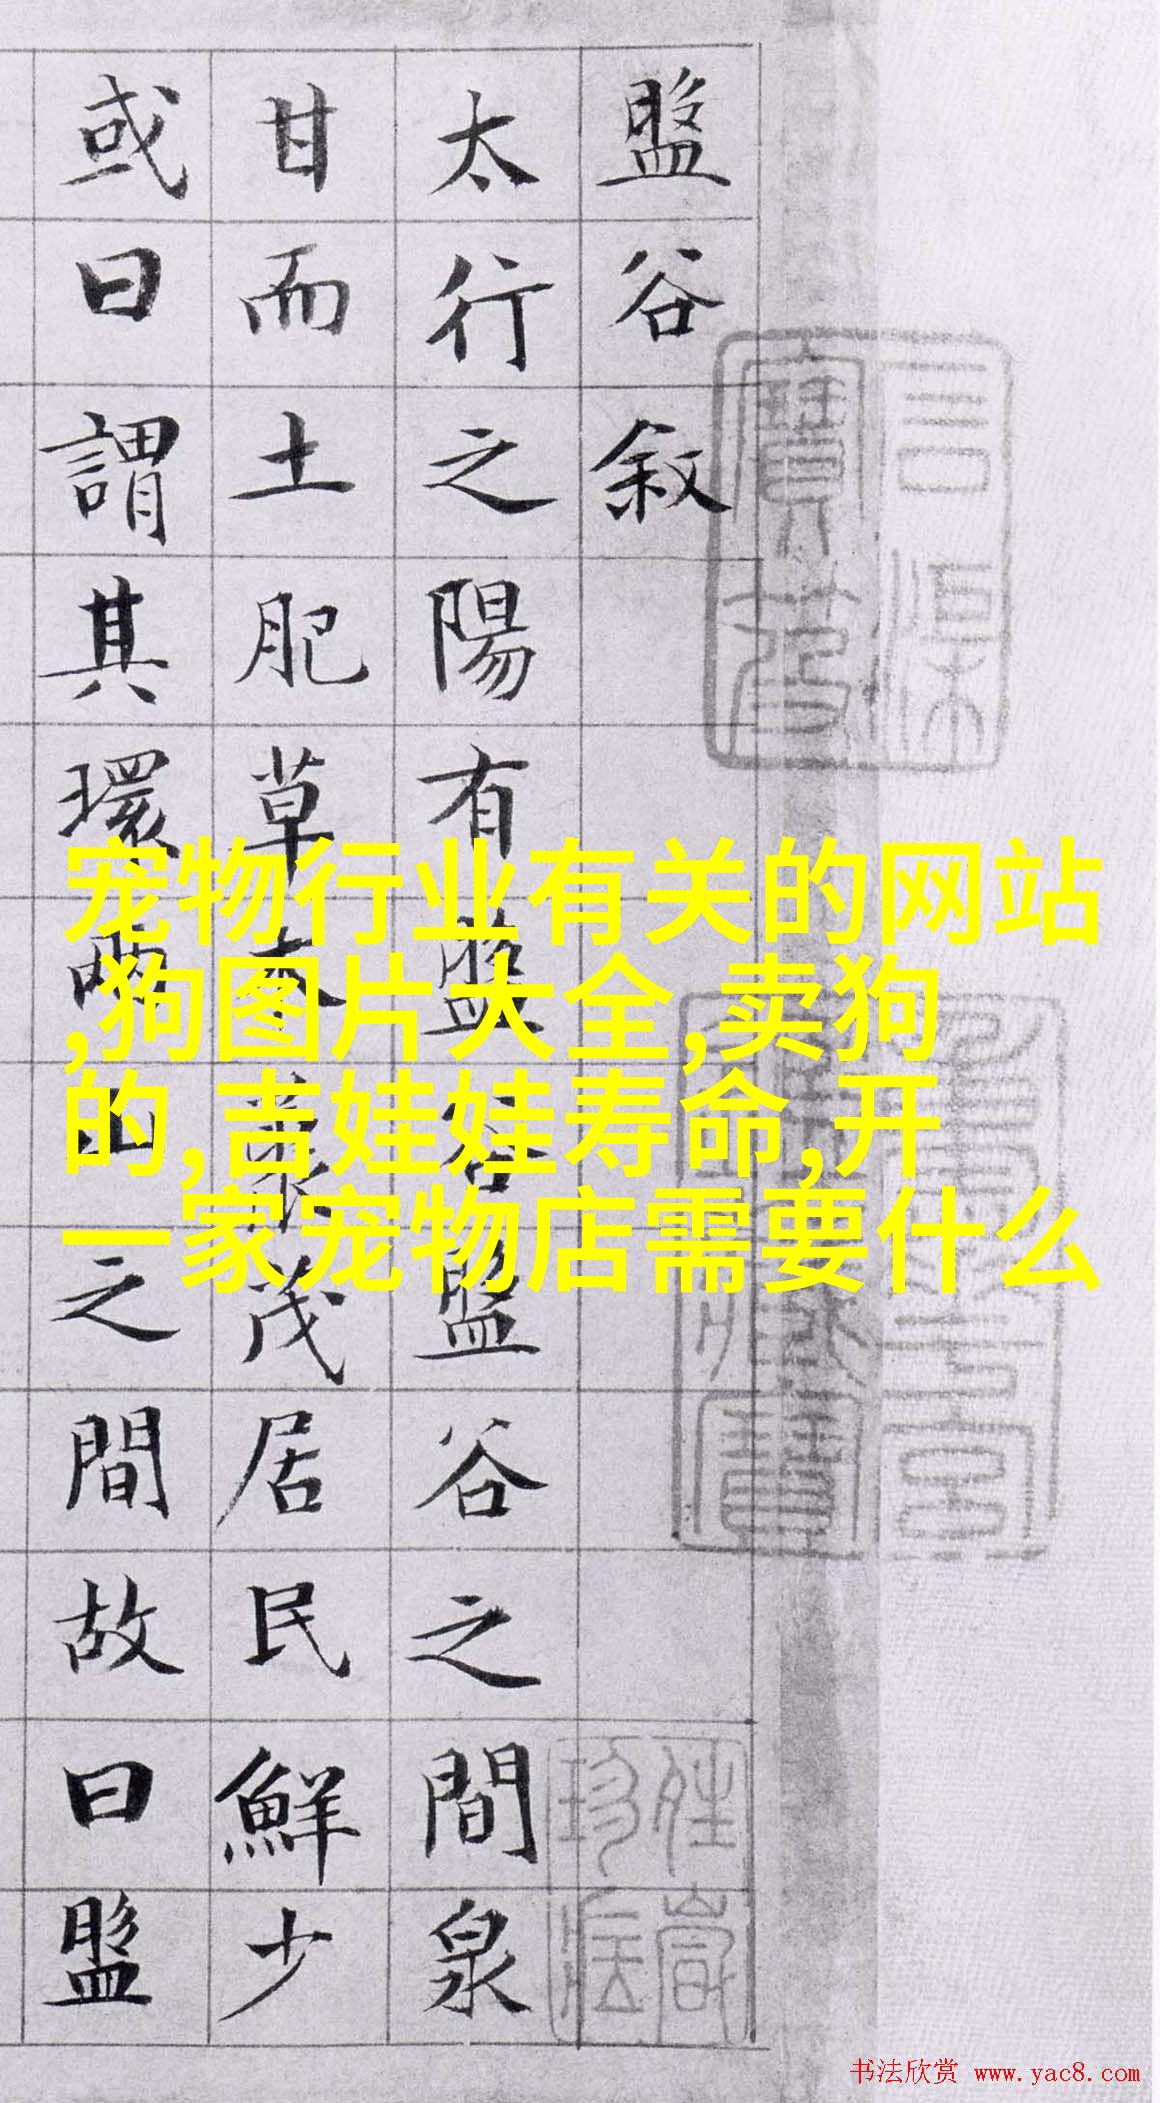 盤谷敘
太行之陽有盤谷盤谷之間泉
甘而土肥草木藂茂居民鮮少
或曰謂其環兩山之間故曰盤
宠物行业有关的网站
,狗图片大全,卖狗
的,吉娃娃寿命,开
一家宠物店需要什么
书法欣赏 www.yac8.com